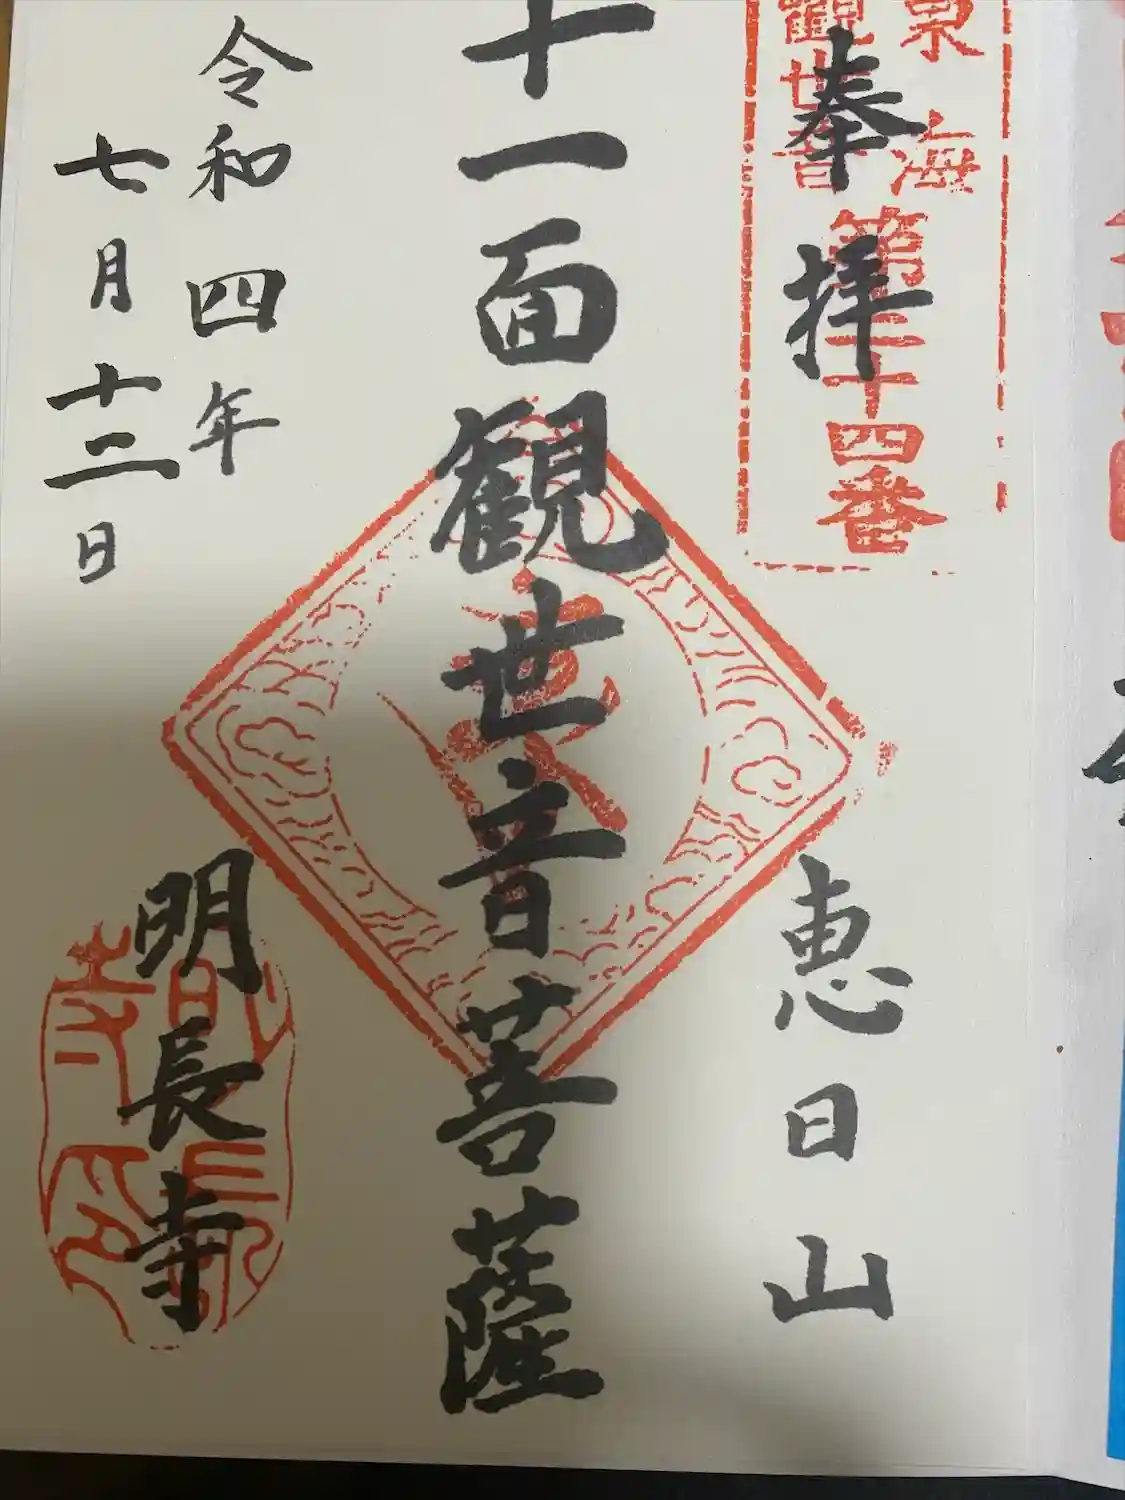 奉拝
東海
観世音
第二十四番
恵日山
十一面観世音菩薩
令和四年
七月十二日
明長寺